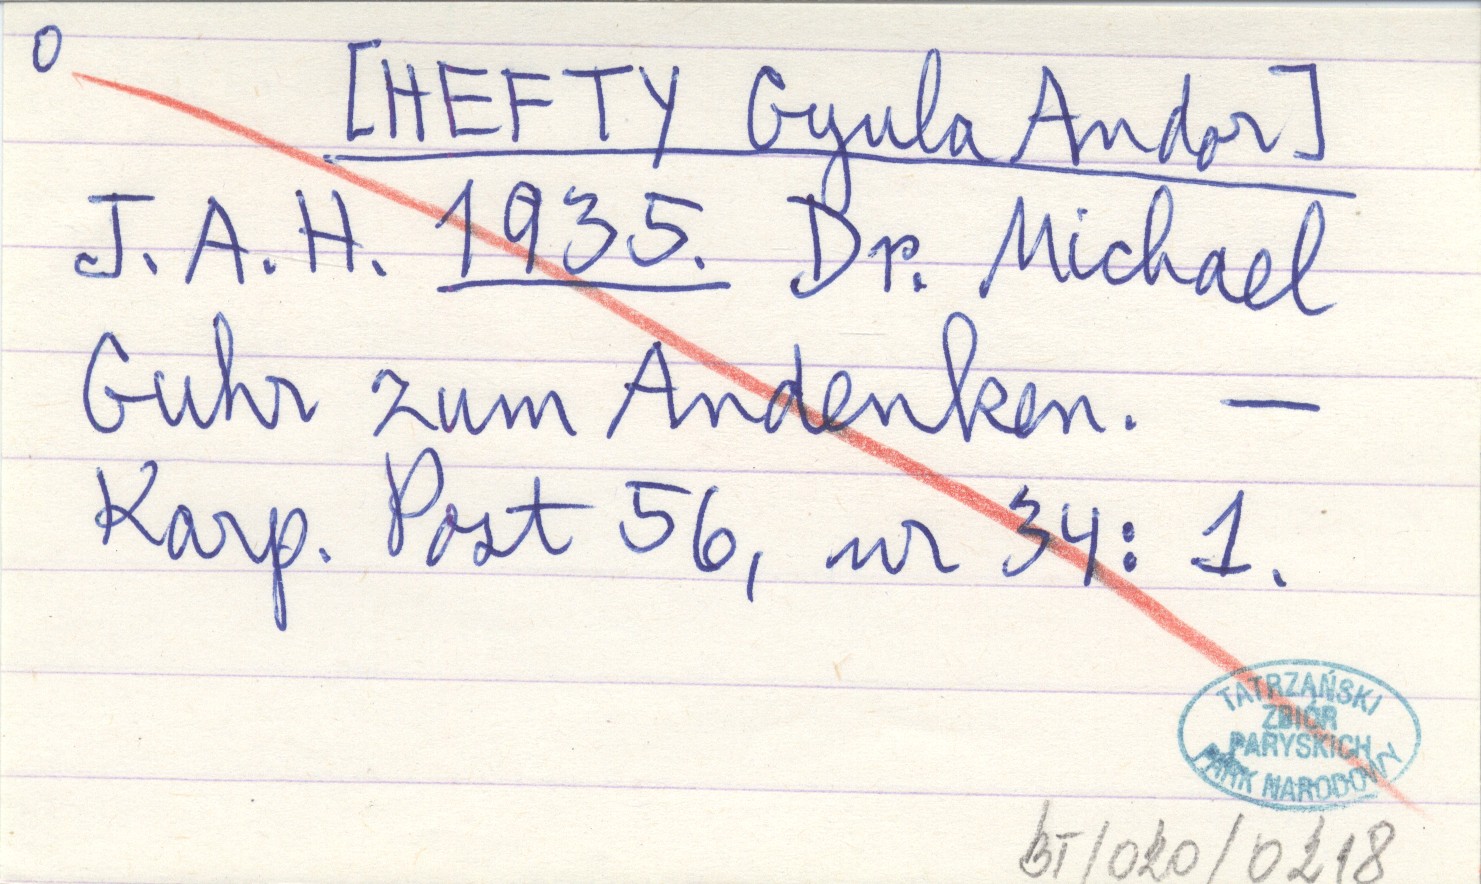 0
[HEFTY Gyula Andor]
J.A.H. 1935. Dr. Michael
Guhr zum Andenken. —
Karp. Post 56, nr 34: 1.
TATRZAŃSKI
ZBIÓR
PARYSKICH
PARK NARODOWY
BT/020/0218